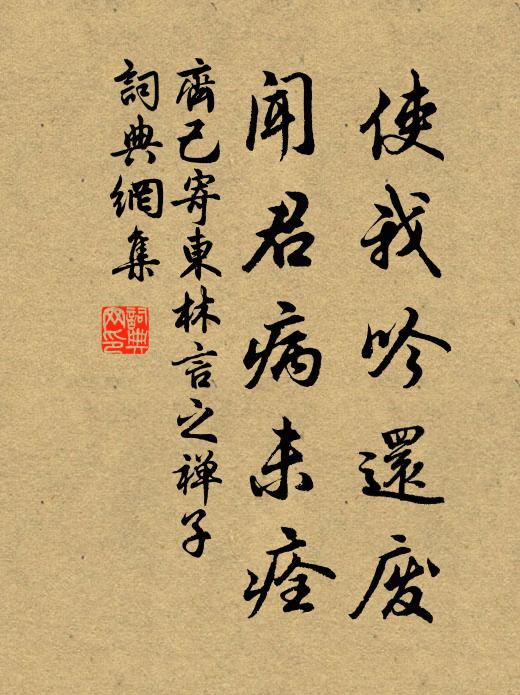 使我吟還廢
聞君病未痊
齊己寄東林言之禅子
詞典網集
詞典网印